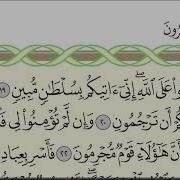 رُونَ
وا۟ عَلَى ٱللَّهِ ۖ إِنِّىٓ ءَاتِيكُم بِسُلْطَٰنٍ مُّبِينٍ ١٩
كُمْ أَن تَرْجُمُونِ ٢٠ وَإِن لَّمْ تُؤْمِنُوا۟ لِى فَ
أَنَّ هَٰٓؤُلَآءِ قَوْمٌ مُّجْرِمُونَ ٢٢ فَأَسْرِ بِعِبَادِ